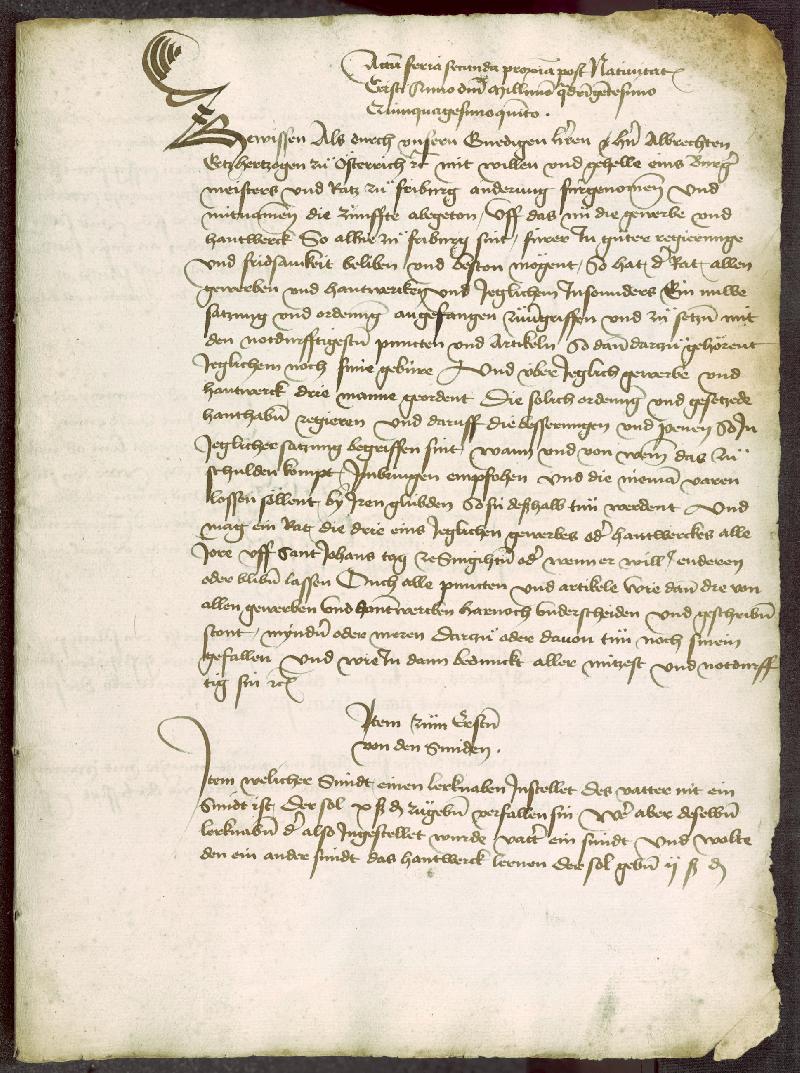 Actum feria secunda proxima post Nativitat
Cristi Anno dm̄ Millm̄o qdringētesimo
Quinquagesimoquīto .
Ze wissen Als durch vnsern Gnedigen h'ren h'n Albrechten
Ertzhertzogen zů Österreich ꝛc mit willen vnd gehelle eins Burg'
meisters vnd Ratz zů friburg anderung fúrgenom̄en vnd
mitnam̄en die zúnffte abegeton, Vff das nů die gewerbe vnd
hantwerck So alhie zů friburg sint, fúrer In gůter regierunge
vnd fridsamkeit beliben vnd beston mögent, So hat d' Rat allen
gewerben vnd hantwercken vnd Jeglichem Insonnders Ein nuwe
satzung vnd ordenūg angefangen zůmgriffen vnd zů setzn̄ mit
den notdurfftigestn̄ puncten vnd Artikeln So dan̄ darzů gehörent
Jeglichem noch sime gebúre Vnd vber Jeglich gewerbe vnd
hantwerck drie manne geordent Die solich ordenūg vnd gesetzede
hanthabn̄ regieren vnd daruff die besserungen vnd penen So In
Jeglicher satzung begriffen sint, wann vnd von wem̄ das zů
schulden kompt, Inbringen empfohen vnd die nieman varen
lossen söllent, by Iren glúbden So sú deßhalb tůn werdent Vnd
mag ein Rat die drie eins Jeglichen gewerbes od' hantwerckes alle
Jore vff Sant Johans tag ze Sungihtn̄ od' wenner er will, enderen
oder bliben lassen Ouch alle puncten vnd artikele wie dan̄ die von
allen gewerben vnd hantwercken harnoch vnderscheiden vnd geschribn̄
stont, myndn̄ odere meren darzů odere dauon tůn noch sinem
gefallen vnd wie In dann bedunckt aller nützest vnd notdurff
tig sin ꝛc
Item zům Erstn̄
von den Smiden .
Item welicher Smidt einen lerknaben Instellet des vatter nit ein
Smidt ist, der sol x ß ₰ zů gebn̄ verfallen sin Wer aber deselbn̄
lerknabn̄ d' also Ingestellet wurde vatt' ein smidt vnd wolte
den ein ander smidt das hantwerck lernen der sol gebn̄ ij ß ₰